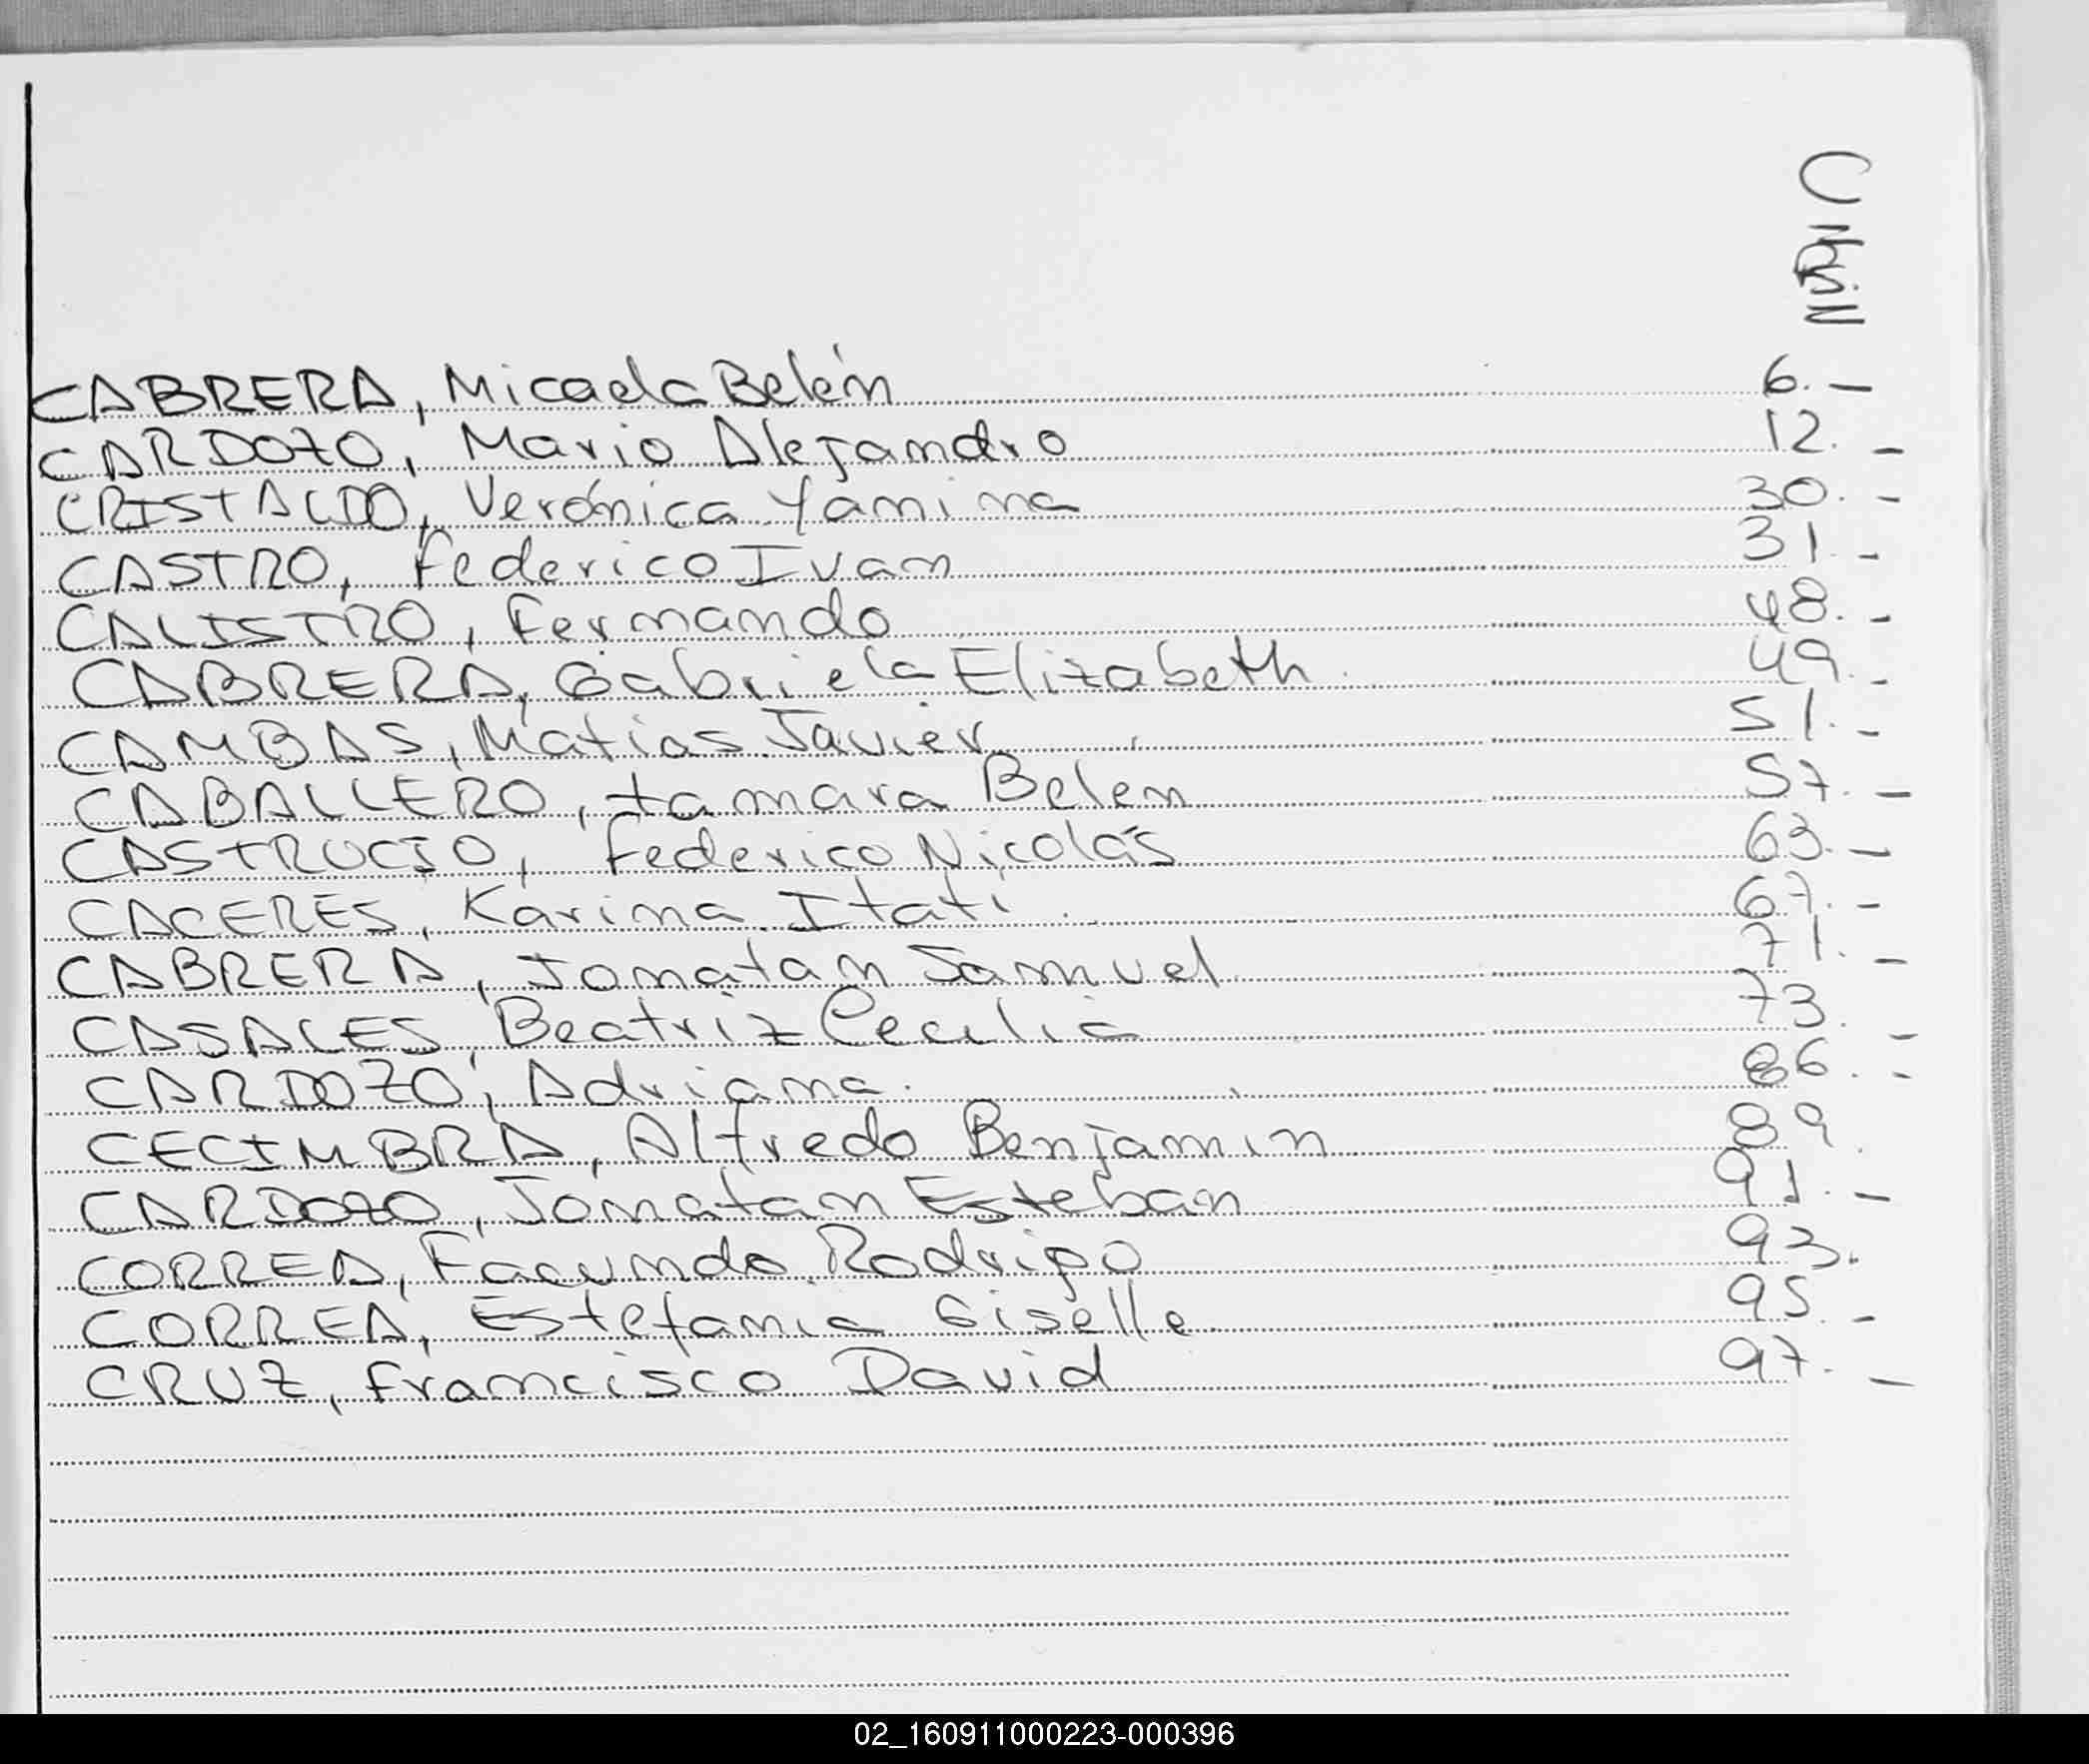 C
CABRERA, Micaela Belén 6.-
CARDOZO, Mario Alejandro 12.-
CRISTALDO, Verónica Yamina 30.-
CASTRO, Federico Ivan 31.-
CALISTRO, Fernando 48.-
CABRERA, Gabriela Elizabeth 49.-
CAMBAS, Matias Javier 51.-
CABALLERO, tamara Belen 57.-
CASTRUCIO, Federico Nicolás 63.-
CACERES, Karina Itatí 67.-
CABRERA, Jonatan Samuel 71.-
CASALES, Beatriz Cecilia 73.-
CARDOZO, Adriana 86.-
CECIMBRA, Alfredo Benjamin 89.
CARDOZO, Jonatan Esteban 91.-
CORREA, Facundo Rodrigo 93.
CORREA, Estefania Giselle 95.-
CRUZ, francisco David 97.-
02_160911000223-000396